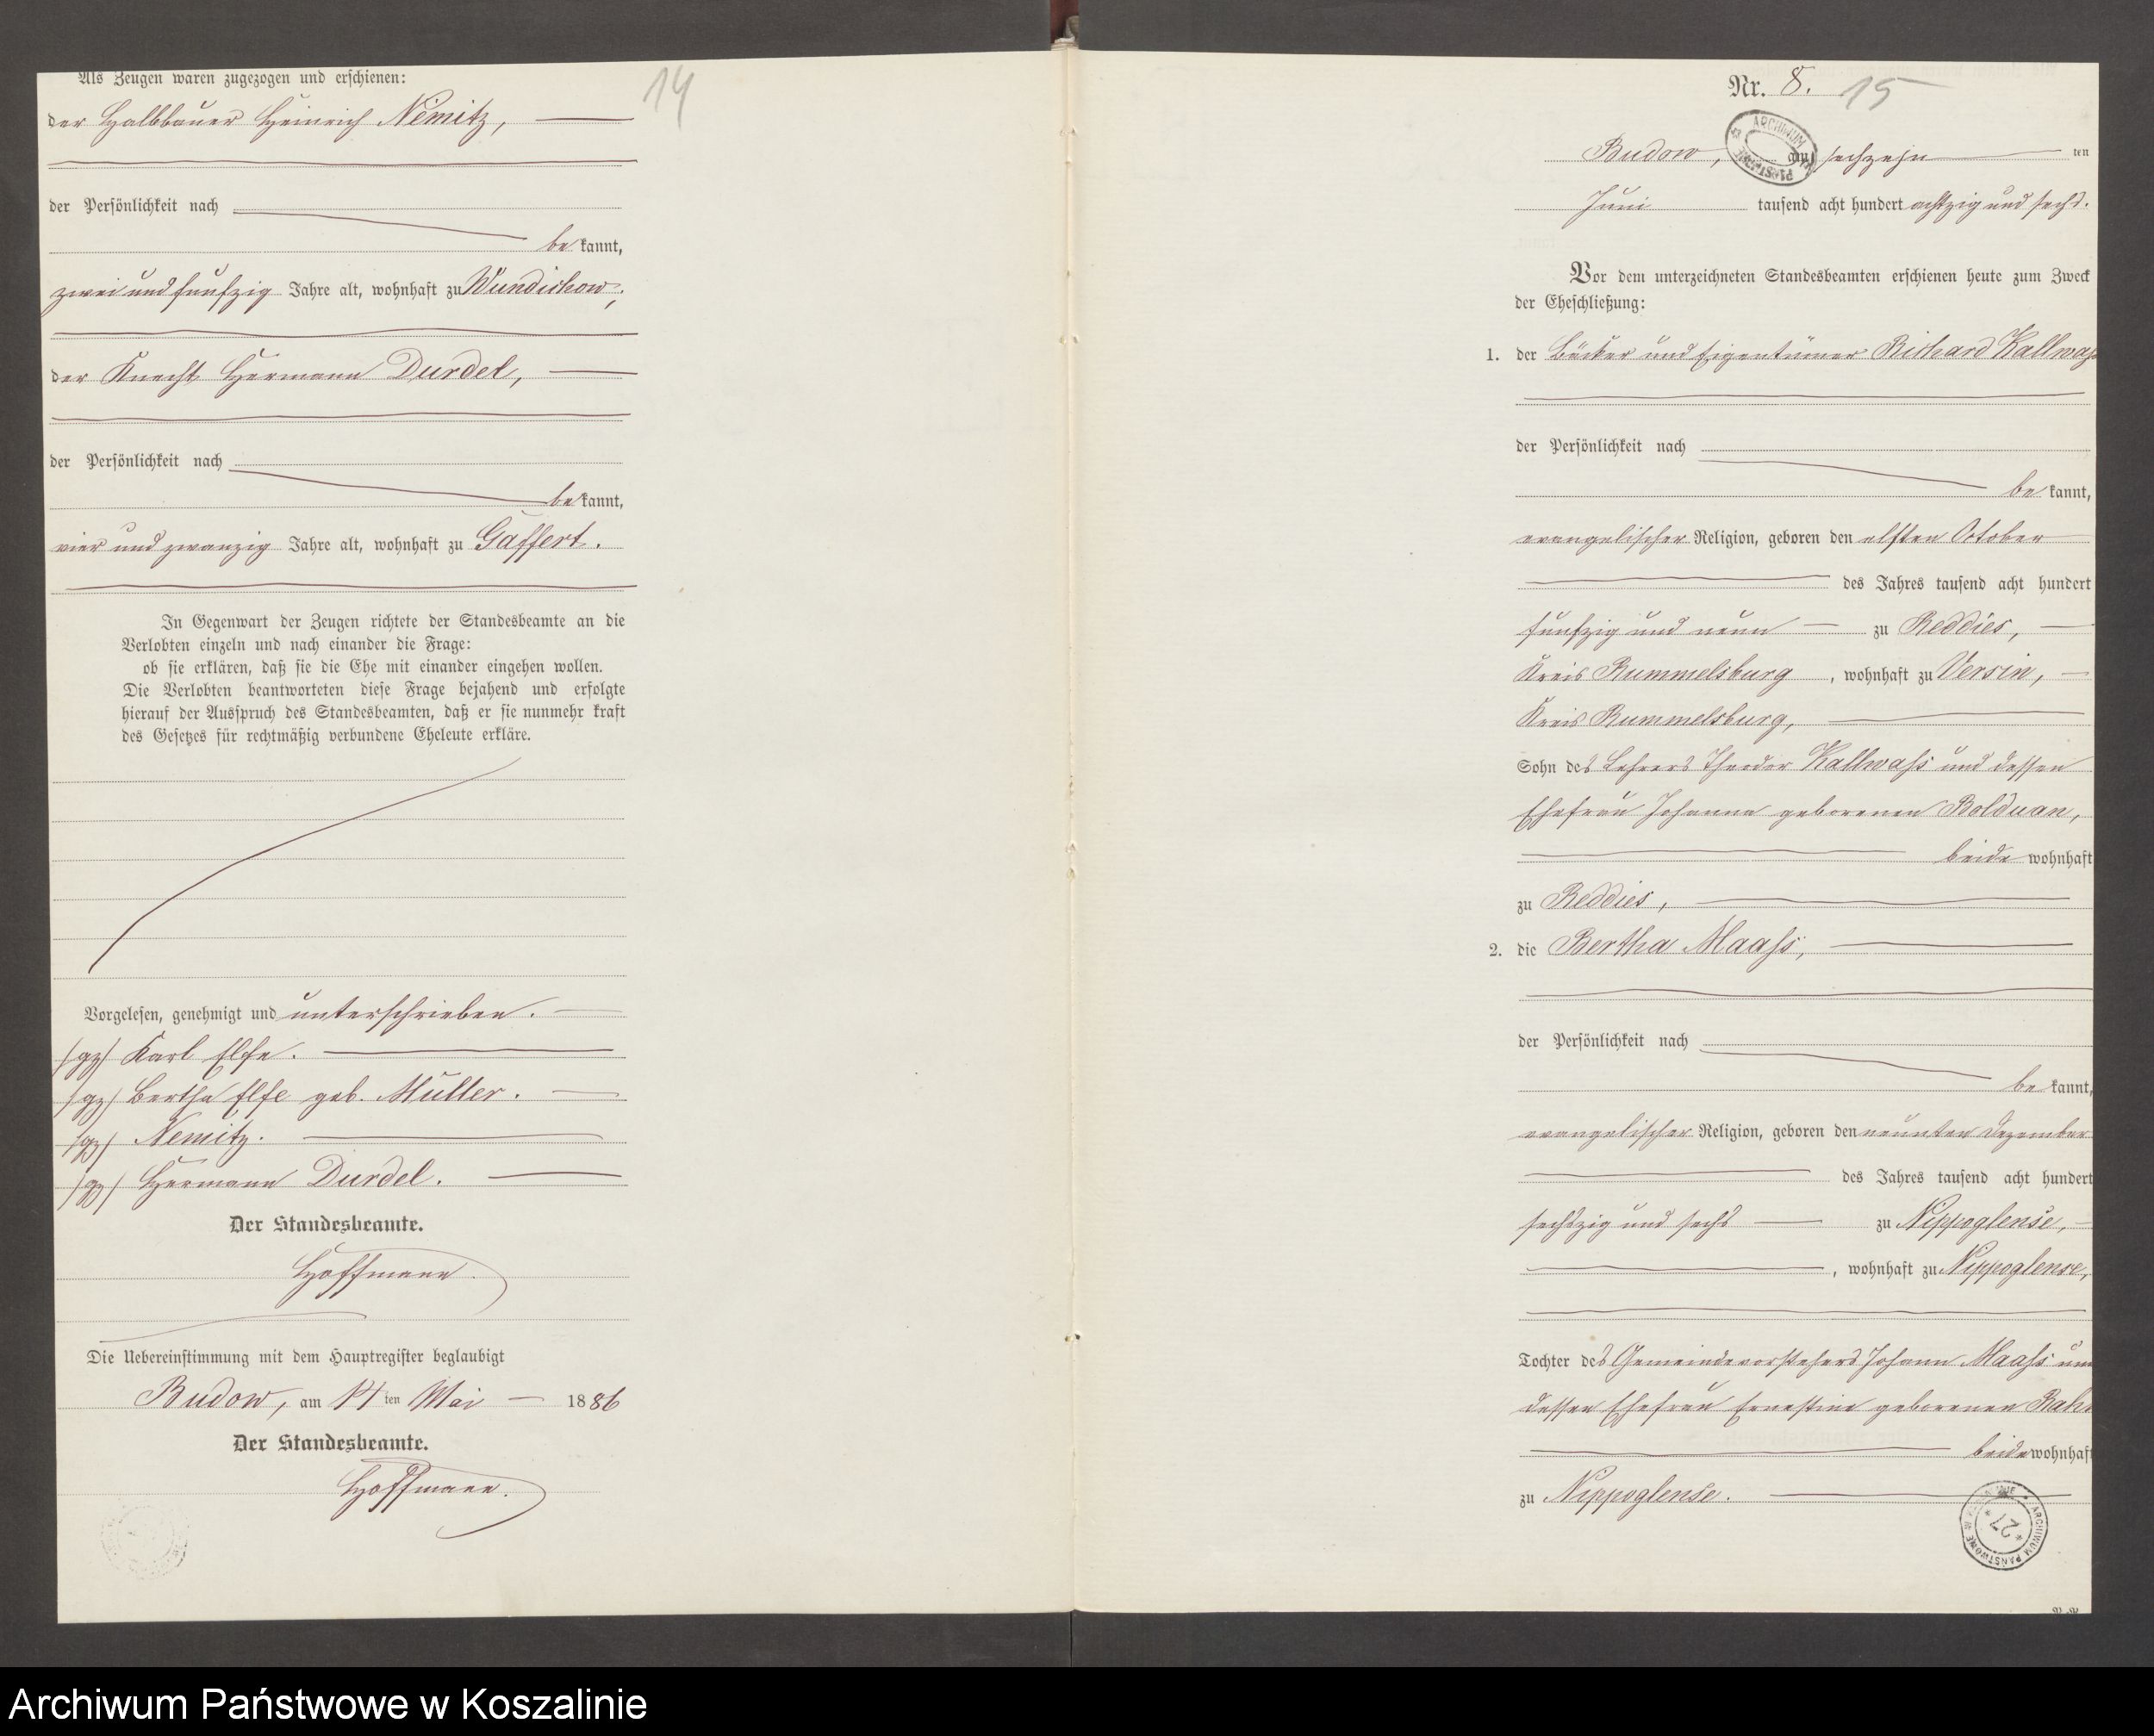 Als Zeugen waren zugezogen und erschienen:
14
der Halbbauer Heinrich Nemitz,
der Persönlichkeit nach
be kannt,
zwei und fünfzig Jahre alt, wohnhaft zu Wundichow;
der Knecht Hermann Durdel,
der Persönlichkeit nach
be kannt,
vier und zwanzig Jahre alt, wohnhaft zu Gaffert.
In Gegenwart der Zeugen richtete der Standesbeamte an die
Verlobten einzeln und nach einander die Frage:
ob sie erklären, daß sie die Ehe mit einander eingehen wollen.
Die Verlobten beantworteten diese Frage bejahend und erfolgte
hierauf der Ausspruch des Standesbeamten, daß er sie nunmehr kraft
des Gesetzes für rechtmäßig verbundene Eheleute erkläre.
Vorgelesen, genehmigt und unterschrieben.
/gz/ Karl Elfe.
/gz/ Bertha Elfe geb. Müller.
/gz/ Nemitz.
/gz/ Hermann Durdel.
Der Standesbeamte.
Hoffmann.
Die Uebereinstimmung mit dem Hauptregister beglaubigt
Budow, am 14 ten Mai 1886
Der Standesbeamte.
Hoffmann.
Nr. 8. 15
Budow, am sechzehn ten
Juni tausend acht hundert achtzig und sechs.
Vor dem unterzeichneten Standesbeamten erschienen heute zum Zweck
der Eheschließung:
1. der Bäcker und Eigentümer Richard Kallwaß
der Persönlichkeit nach
be kannt,
evangelischer Religion, geboren den elften October
des Jahres tausend acht hundert
fünfzig und neun zu Reddies,
Kreis Rummelsburg, wohnhaft zu Versin,
Kreis Rummelsburg,
Sohn des Lehrers Theodor Kallwaß und dessen
Ehefrau Johanna geborenen Bolduan,
beide wohnhaft
zu Reddies,
2. die Bertha Maaß,
der Persönlichkeit nach
be kannt,
evangelischer Religion, geboren den neunten Dezember
des Jahres tausend acht hundert
sechszig und sechs zu Nippoglense,
, wohnhaft zu Nippoglense,
Tochter des Gemeindevorstehers Johann Maaß un
dessen Ehefrau Ernestine geborenen Rah
beide wohnhaft
zu Nippoglense.
ARCHIWUM PAŃSTWOWE W
* 27 *
Archiwum Państwowe w Koszalinie